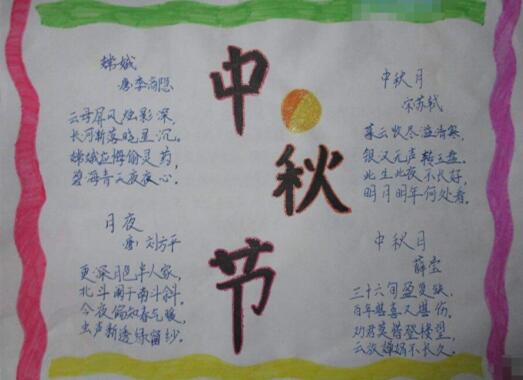 中秋节
嫦娥
唐李商隐
云母屏风烛影深,
长河渐落晓星沉。
嫦娥应悔偷灵药,
碧海青天夜夜心。
中秋月
宋苏轼
暮云收尽溢清寒,
银汉无声转玉盘。
此生此夜不长好,
明月明年何处看。
月夜
唐 刘方平
更深月色半人家,
北斗阑干南斗斜。
今夜偏知春气暖,
虫声新透绿窗纱。
中秋月
薛莹
三十六旬盈复缺,
百年堪喜又堪伤。
劝君莫惜登楼望,
云放婵娟不长久。